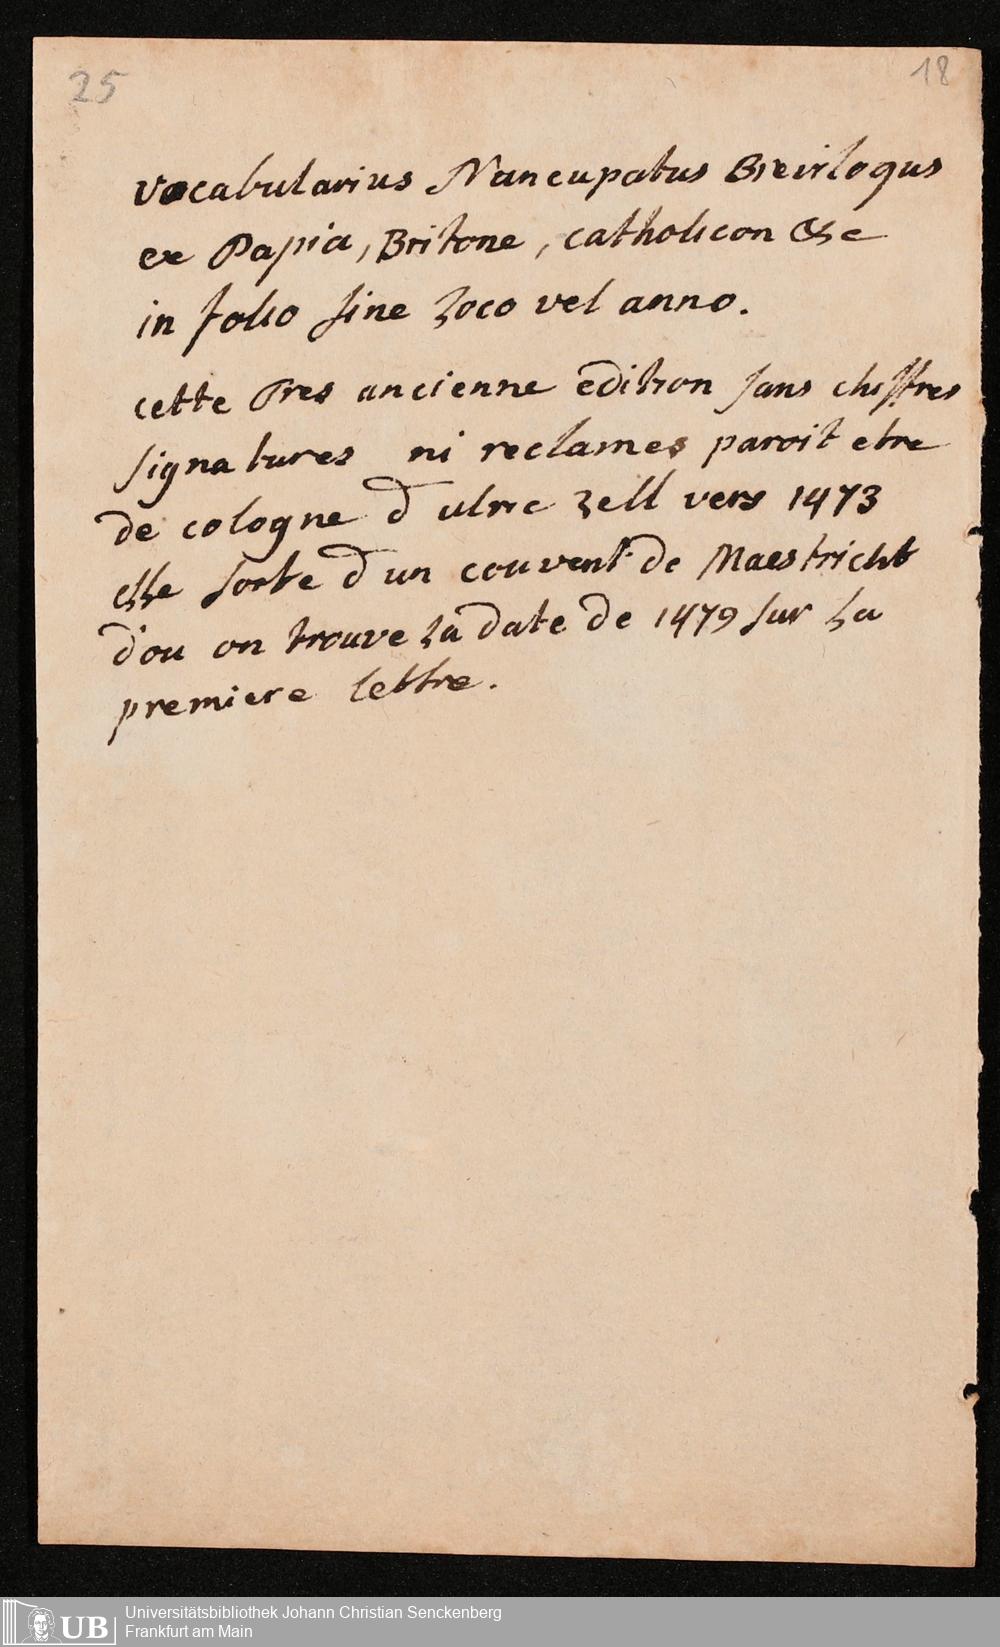 25
18
vocabularius Nancupatus Brevrloqus
ex Papia, Britone, catholicon &c
in folio sine Loco vel anno.
cette Tres ancienne edition sans chiffres
signatures ni reclames paroit etre
de cologne d ulric zell vers 1473
elle sorte d un couvent de Maestricht
d'ou on trouve La date de 1479 sur La
premiere lettre.
UB
Universitätsbibliothek Johann Christian Senckenberg
Frankfurt am Main